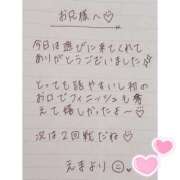 お兄様へ♡
今日は遊びに来てくれて
ありがとうございました
とっても話やすいし初の
お口でフィニッシュも考
えて嬉しかったよ〜♡
次は2回戦だね♡
えまより☺